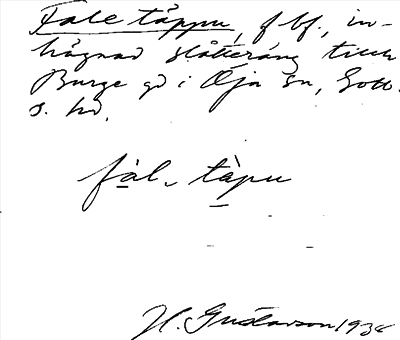 Fale täppu, f bf., in-
hägnad slåtteräng till
Burge gd i Öja sn, Gotl.
s. hd.
fàl. tàpu
H. Gustavson 1938